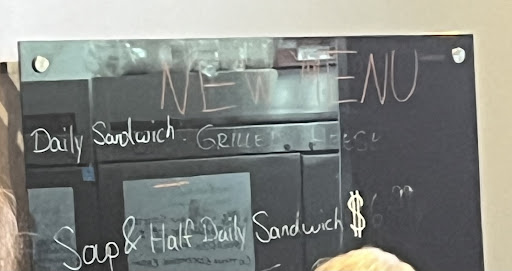 NEW MENU
Daily Sandwich - GRILLED CHEESE
Soup & Half Daily Sandwich $6.99